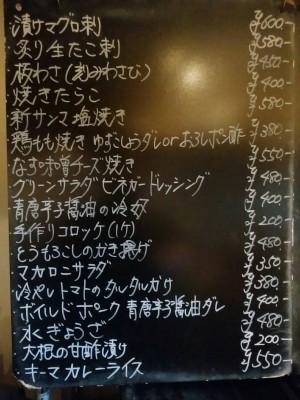 ・漬けマグロ刺 ¥600-
・炙り生たこ刺 ¥580-
・板わさ(刻みわさび) ¥450-
・焼きたらこ ¥400-
・新サンマ塩焼き ¥580-
・鶏もも焼き ゆずこしょうダレorおろしポン酢 ¥380-
・なす味噌チーズ焼き ¥550-
・グリーンサラダ ビネガードレッシング ¥480-
・青唐辛子醤油の冷奴 ¥400-
・手作りコロッケ(1ケ) ¥200-
・とうもろこしのかき揚げ ¥480-
・マカロニサラダ ¥350-
・冷やしトマトのタルタルがけ ¥380-
・ボイルドポーク 青唐辛子醤油ダレ ¥400-
・水ぎょうざ ¥480-
・大根の甘酢漬け ¥200-
・キーマカレーライス ¥550-